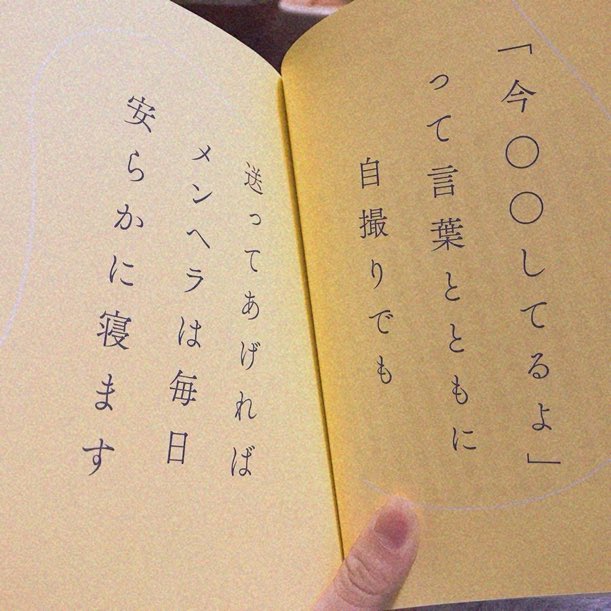 「今〇〇してるよ」
って言葉とともに
自撮りでも
送ってあげれば
メンヘラは毎日
安らかに寝ます